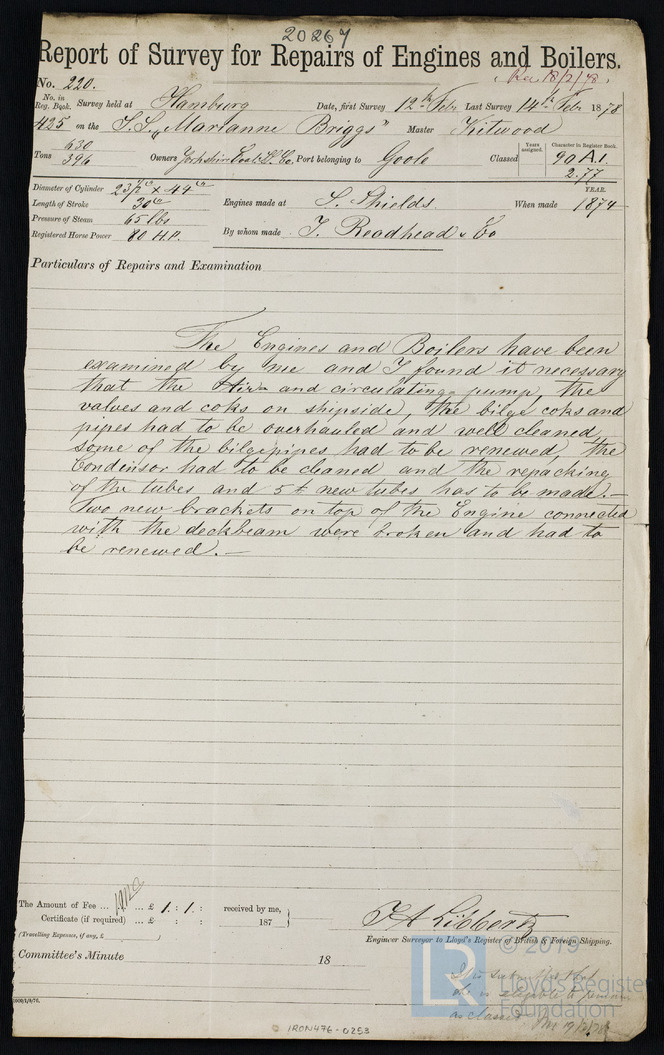 20267
Report of Survey for Repairs of Engines and Boilers.
Rec 18/2/78.
No. 220.
No. in Reg. Book. Survey held at Hamburg Date, first Survey 12th Febr Last Survey 14th Febr 1878
425 on the S.S. „Marianne Briggs" Master Kitwood
Tons 630 396 Owners Yorkshire Coal & Co. Port belonging to Goole Classed Years assigned. Character in Register Book. 90 A.1. 2.77
YEAR.
Diameter of Cylinder 23½" x 44"
Length of Stroke 30" Engines made at S. Shields When made 1874
Pressure of Steam 65 lbs
Registered Horse Power 80 H.P. By whom made J. Readhead & Co
Particulars of Repairs and Examination
The Engines and Boilers have been
examined by me and I found it necessary
that the Air and circulating pump, the
valves and coks on shipside, the bilge coks and
pipes had to be overhauled and well cleaned,
some of the bilgepipes had to be renewed, the
Condensor had to be cleaned and the repacking
of the tubes and 5 new tubes has to be made.—
Two new brackets on top of the Engine connected
with the deckbeam were broken and had to
be renewed.—
The Amount of Fee ... ... £ 1 : 1 : received by me,
Certificate (if required) ... £ : : 187
(Travelling Expenses, if any, £ )
Engineer Surveyor to Lloyd's Register of British & Foreign Shipping.
Committee's Minute 18
© 2019
LR Lloyd's Register Foundation
is eligible to remain
as classed 19/2/78
IRON476-0253